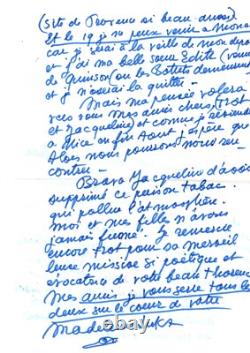 (site de Provence si beau aussi)
Et le 19 je ne peux venir à
car je serai à la veille de mon départ
et j'ai ma belle soeur Edith
de Quinson
et je n'oserai la quitter -
Mais ma pensée volera
vers vous mes amis chers,
et Jacqueline) et comme je
à Nice en fin Aout j'espère que
Alors nous pourrons nous ren
contrer -
Bravo Jacqueline d'avoir
supprimé ce poison tabac
qui pollue l'atmosphère.
moi et mes filles n'avons
jamais fumé. Je remercie
encore trot pour sa merveil
leuse missive si poétique et
évocatrice de votre beau Thorenc
Mes amis je vous serre tous les
deux sur le coeur de votre